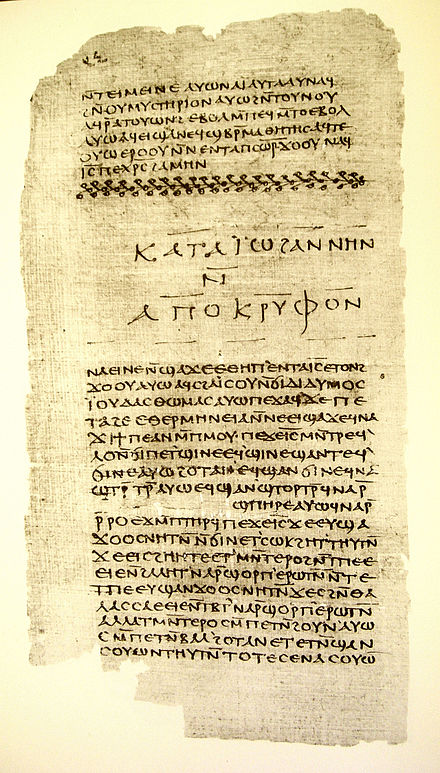 ⲛⲧⲉⲓⲙⲉⲓⲛⲉ ⲁⲩⲱ ⲛⲁⲓ ⲁⲩⲧⲁⲁⲩ ⲛⲁϥ
ϩⲛ ⲟⲩⲙⲩⲥⲧⲏⲣⲓⲟⲛ ⲁⲩⲱ ϩⲛ ⲧⲟⲩⲛⲟⲩ
ⲁϥⲣⲁⲧⲟⲩⲱⲛϩ ⲉⲃⲟⲗ ⲙⲡⲉϥⲙⲧⲟ ⲉⲃⲟⲗ
ⲁⲩⲱ ⲁϥⲉⲓ ϣⲁ ⲛⲉϥϣⲃⲣⲙⲁⲑⲏⲧⲏⲥ ⲁϥⲧⲉ
ⲟⲩⲱ ⲉⲣⲟⲟⲩ ⲛⲛⲉⲛⲧⲁⲡⲥⲱⲣ ϫⲟⲟⲩ ⲛⲁϥ
ⲓⲥ ⲡⲉⲭⲣⲥ ϩⲁⲙⲏⲛ
ⲕⲁⲧⲁ ⲓⲱϩⲁⲛⲛⲏⲛ
ⲛ
ⲁⲡⲟⲕⲣⲩⲫⲟⲛ
ⲛⲁⲉⲓ ⲛⲉ ⲛϣⲁϫⲉ ⲉⲑⲏⲡ ⲉⲛⲧⲁ ⲓⲥ ⲉⲧⲟⲛϩ
ϫⲟⲟⲩ ⲁⲩⲱ ⲁϥⲥϩⲁⲓⲥⲟⲩ ⲛϭⲓ ⲇⲓⲇⲩⲙⲟⲥ
ⲓⲟⲩⲇⲁⲥ ⲑⲱⲙⲁⲥ ⲁⲩⲱ ⲡⲉϫⲁϥ ϫⲉ ⲡⲉ
ⲧⲁϩⲉ ⲉⲑⲉⲣⲙⲏⲛⲉⲓⲁ ⲛⲛⲉⲉⲓϣⲁϫⲉ ϥⲛⲁ
ϫⲓ ϯⲡⲉ ⲁⲛ ⲙⲡⲙⲟⲩ ⲡⲉϫⲉ ⲓⲥ ⲙⲛⲧⲣⲉϥ
ⲗⲟ ⲛϭⲓ ⲡⲉⲧϣⲓⲛⲉ ⲉϥϣⲓⲛⲉ ϣⲁⲛⲧⲉϥ
ϭⲓⲛⲉ ⲁⲩⲱ ϩⲟⲧⲁⲛ ⲉϥϣⲁⲛϭⲓⲛⲉ ϥⲛⲁ
ϣⲧⲣⲧⲣ ⲁⲩⲱ ⲉϥϣⲁⲛϣⲧⲟⲣⲧⲣ ϥⲛⲁⲣ
ϣⲡⲏⲣⲉ ⲁⲩⲱ ϥⲛⲁⲣ
ⲣⲣⲟ ⲉϫⲙ ⲡⲧⲏⲣϥ ⲡⲉϫⲉ ⲓⲥ ϫⲉ ⲉⲩϣⲁ
ϫⲟⲟⲥ ⲛⲏⲧⲛ ⲛϭⲓ ⲛⲉⲧⲥⲱⲕ ϩⲏⲧ ⲧⲏⲩⲧⲛ
ϫⲉ ⲉⲓⲥϩⲏⲏⲧⲉ ⲉⲧⲙⲛⲧⲉⲣⲟ ϩⲛ ⲧⲡⲉ ⲉ
ⲉⲓⲉ ⲛϩⲁⲗⲏⲧ ⲛⲁⲣ ϣⲟⲣⲡ ⲉⲣⲱⲧⲛ ⲛⲧⲉ
ⲧⲡⲉ ⲉⲩϣⲁⲛϫⲟⲟⲥ ⲛⲏⲧⲛ ϫⲉ ⲥϩⲛ ⲑⲁ
ⲗⲁⲥⲥⲁ ⲉⲉⲓⲉ ⲛⲧⲃⲧ ⲛⲁⲣ ϣⲟⲣⲡ ⲉⲣⲱⲧⲛ
ⲁⲗⲗⲁ ⲧⲙⲛⲧⲉⲣⲟ ⲥⲙⲡⲉⲧⲛϩⲟⲩⲛ ⲁⲩⲱ
ⲥⲙⲡⲉⲧⲛⲃⲁⲗ ϩⲟⲧⲁⲛ ⲉⲧⲉⲧⲛϣⲁⲛ
ⲥⲟⲩⲱⲛ ⲧⲏⲩⲧⲛ ⲧⲟⲧⲉ ⲥⲉⲛⲁⲥⲟⲩⲱ